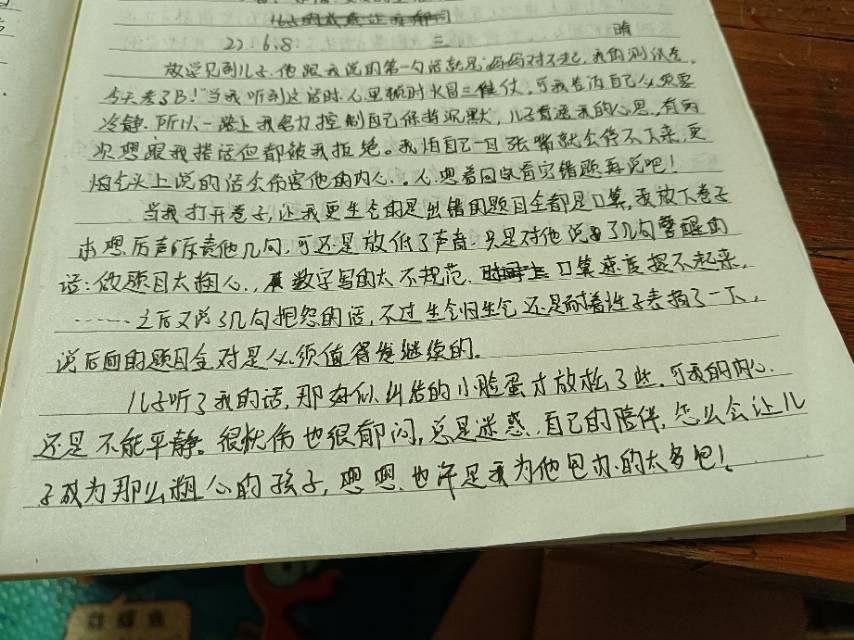 22.6.8 三 晴
放学见到儿子,他跟我说的第一句话就是"妈妈对不起,我的测试卷
今天考了B!"当我听到这话时,心里顿时火冒三丈,可我告诉自己必须要
冷静,所以一路上我努力控制自己保持沉默,儿子看透我的心思,有两
次想跟我搭话但都被我拒绝。我怕自己一旦张嘴就会停不下来,更
怕气头上说的话会伤害他的内心..心想着回家看完错题再说吧!
当我打开卷子,让我更生气的是出错的题目全都是口算,我放下卷子
本想厉声斥责他几句,可还是放低了声音,只是对他说了几句警醒的
话:做题目太粗心,数字写的太不规范,口算速度提不起来,
……之后又说了几句抱怨的话,不过生气归生气还是耐着性子表扬了一下,
说后面的题目全对是必须值得发继续的。
儿子听了我的话,那好似纠结的小脸蛋才放松了些,可我的内心
还是不能平静。很忧伤也很郁闷,总是迷惑,自己的陪伴,怎么会让儿
子成为那么粗心的孩子,想想,也许是我为他包办的太多吧!